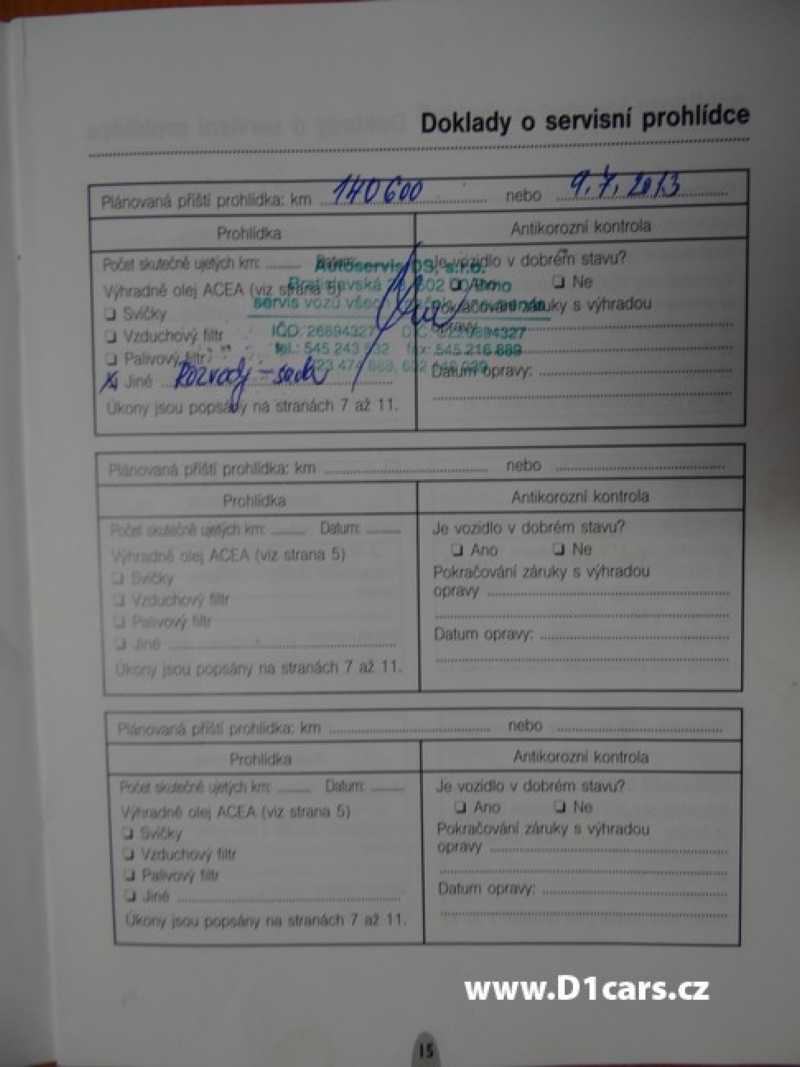 Doklady o servisní prohlídce
Plánovaná příští prohlídka: km 140 600 nebo 9. 7. 2013
Prohlídka
Antikorozní kontrola
Počet skutečně ujetých km: Datum:
Výhradně olej ACEA (viz strana 5)
❑ Svíčky
❑ Vzduchový filtr
❑ Palivový filtr
❑ Jiné Rozvody - sada
Úkony jsou popsány na stranách 7 až 11.
Je vozidlo v dobrém stavu?
❑ Ano ❑ Ne
Pokračování záruky s výhradou
opravy
Datum opravy:
Autoservis DS, s.r.o.
servis vozů všech
IČO: 26894327
tel.: 545 243 fax: 545 216 889
Plánovaná příští prohlídka: km nebo
Prohlídka
Antikorozní kontrola
Počet skutečně ujetých km: Datum:
Výhradně olej ACEA (viz strana 5)
❑ Svíčky
❑ Vzduchový filtr
❑ Palivový filtr
❑ Jiné
Úkony jsou popsány na stranách 7 až 11.
Je vozidlo v dobrém stavu?
❑ Ano ❑ Ne
Pokračování záruky s výhradou
opravy
Datum opravy:
Plánovaná příští prohlídka: km nebo
Prohlídka
Antikorozní kontrola
Počet skutečně ujetých km: Datum:
Výhradně olej ACEA (viz strana 5)
❑ Svíčky
❑ Vzduchový filtr
❑ Palivový filtr
❑ Jiné
Úkony jsou popsány na stranách 7 až 11.
Je vozidlo v dobrém stavu?
❑ Ano ❑ Ne
Pokračování záruky s výhradou
opravy
Datum opravy:
www.D1cars.cz
15